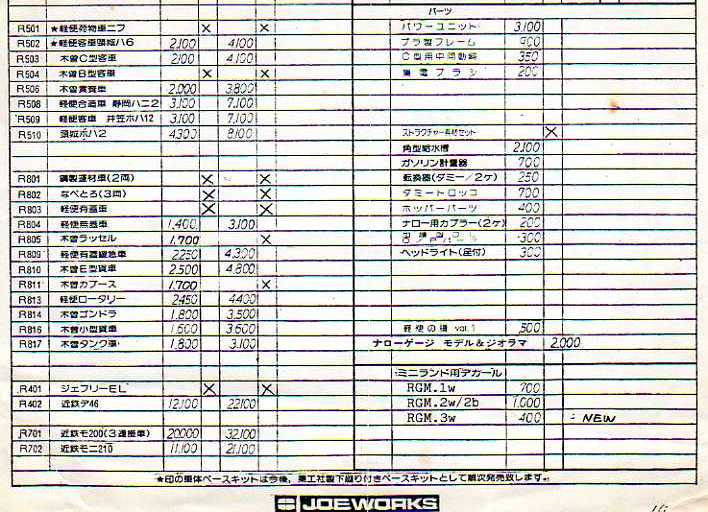 R501 ★軽便荷物車ニフ × ×
R502 ★軽便客車頸城ハ6 2,100 4,100
R503 木曽C型客車 2,100 4,100
R504 木曽B型客車 × ×
R506 木曽貫賓車 2,000 3,800
R508 軽便合造車 静岡ハニ2 3,100 7,100
R509 軽便客車 井笠ホハ12 3,100 7,100
R510 頸城ホハ2 4,300 8,100
R801 鋼製運材車(2両) × ×
R802 なべとろ(3両) × ×
R803 軽便有蓋車 × ×
R804 軽便無蓋車 1,400 3,100
R805 木曽ラッセル 1,700 ×
R809 軽便有蓋緩急車 2250 4,300
R810 木曽E型貨車 2,500 4,800
R811 木曽カブース 1,700 ×
R813 軽便ロータリー 2450 4400
R814 木曽ゴンドラ 1,800 3,500
R816 木曽小型貨車 1,600 3,600
R817 木曽タンク車 1,800 3,100
R401 ジェフリーEL × ×
R402 近鉄デ46 12,100 22,100
R701 近鉄モ200(3連接車) 20,000 32,100
R702 近鉄モニ210 11,100 21,100
パーツ
パワーユニット 3,100
プラ製フレーム 900
C型用中間動輪 350
集電ブラシ 200
ストラクチャー再総セット ×
角型給水槽 2,100
ガソリン計量器 700
転換器(ダミー/2ケ) 250
ダミートロッコ 700
ホッパーパーツ 400
ナロー用カプラー(2ケ) 200
300
ヘッドライト(足付) 300
軽便の頃 vol.1 500
ナローゲージ モデル&ジオラマ 2,000
ミニランド用デカール
RGM.1w 700
RGM.2w/2b 1,000
RGM.3w 400 NEW
★印の車体ベースキットは今後,乗工社製下廻り付きベースキットとして順次発売致します。
JOEWORKS